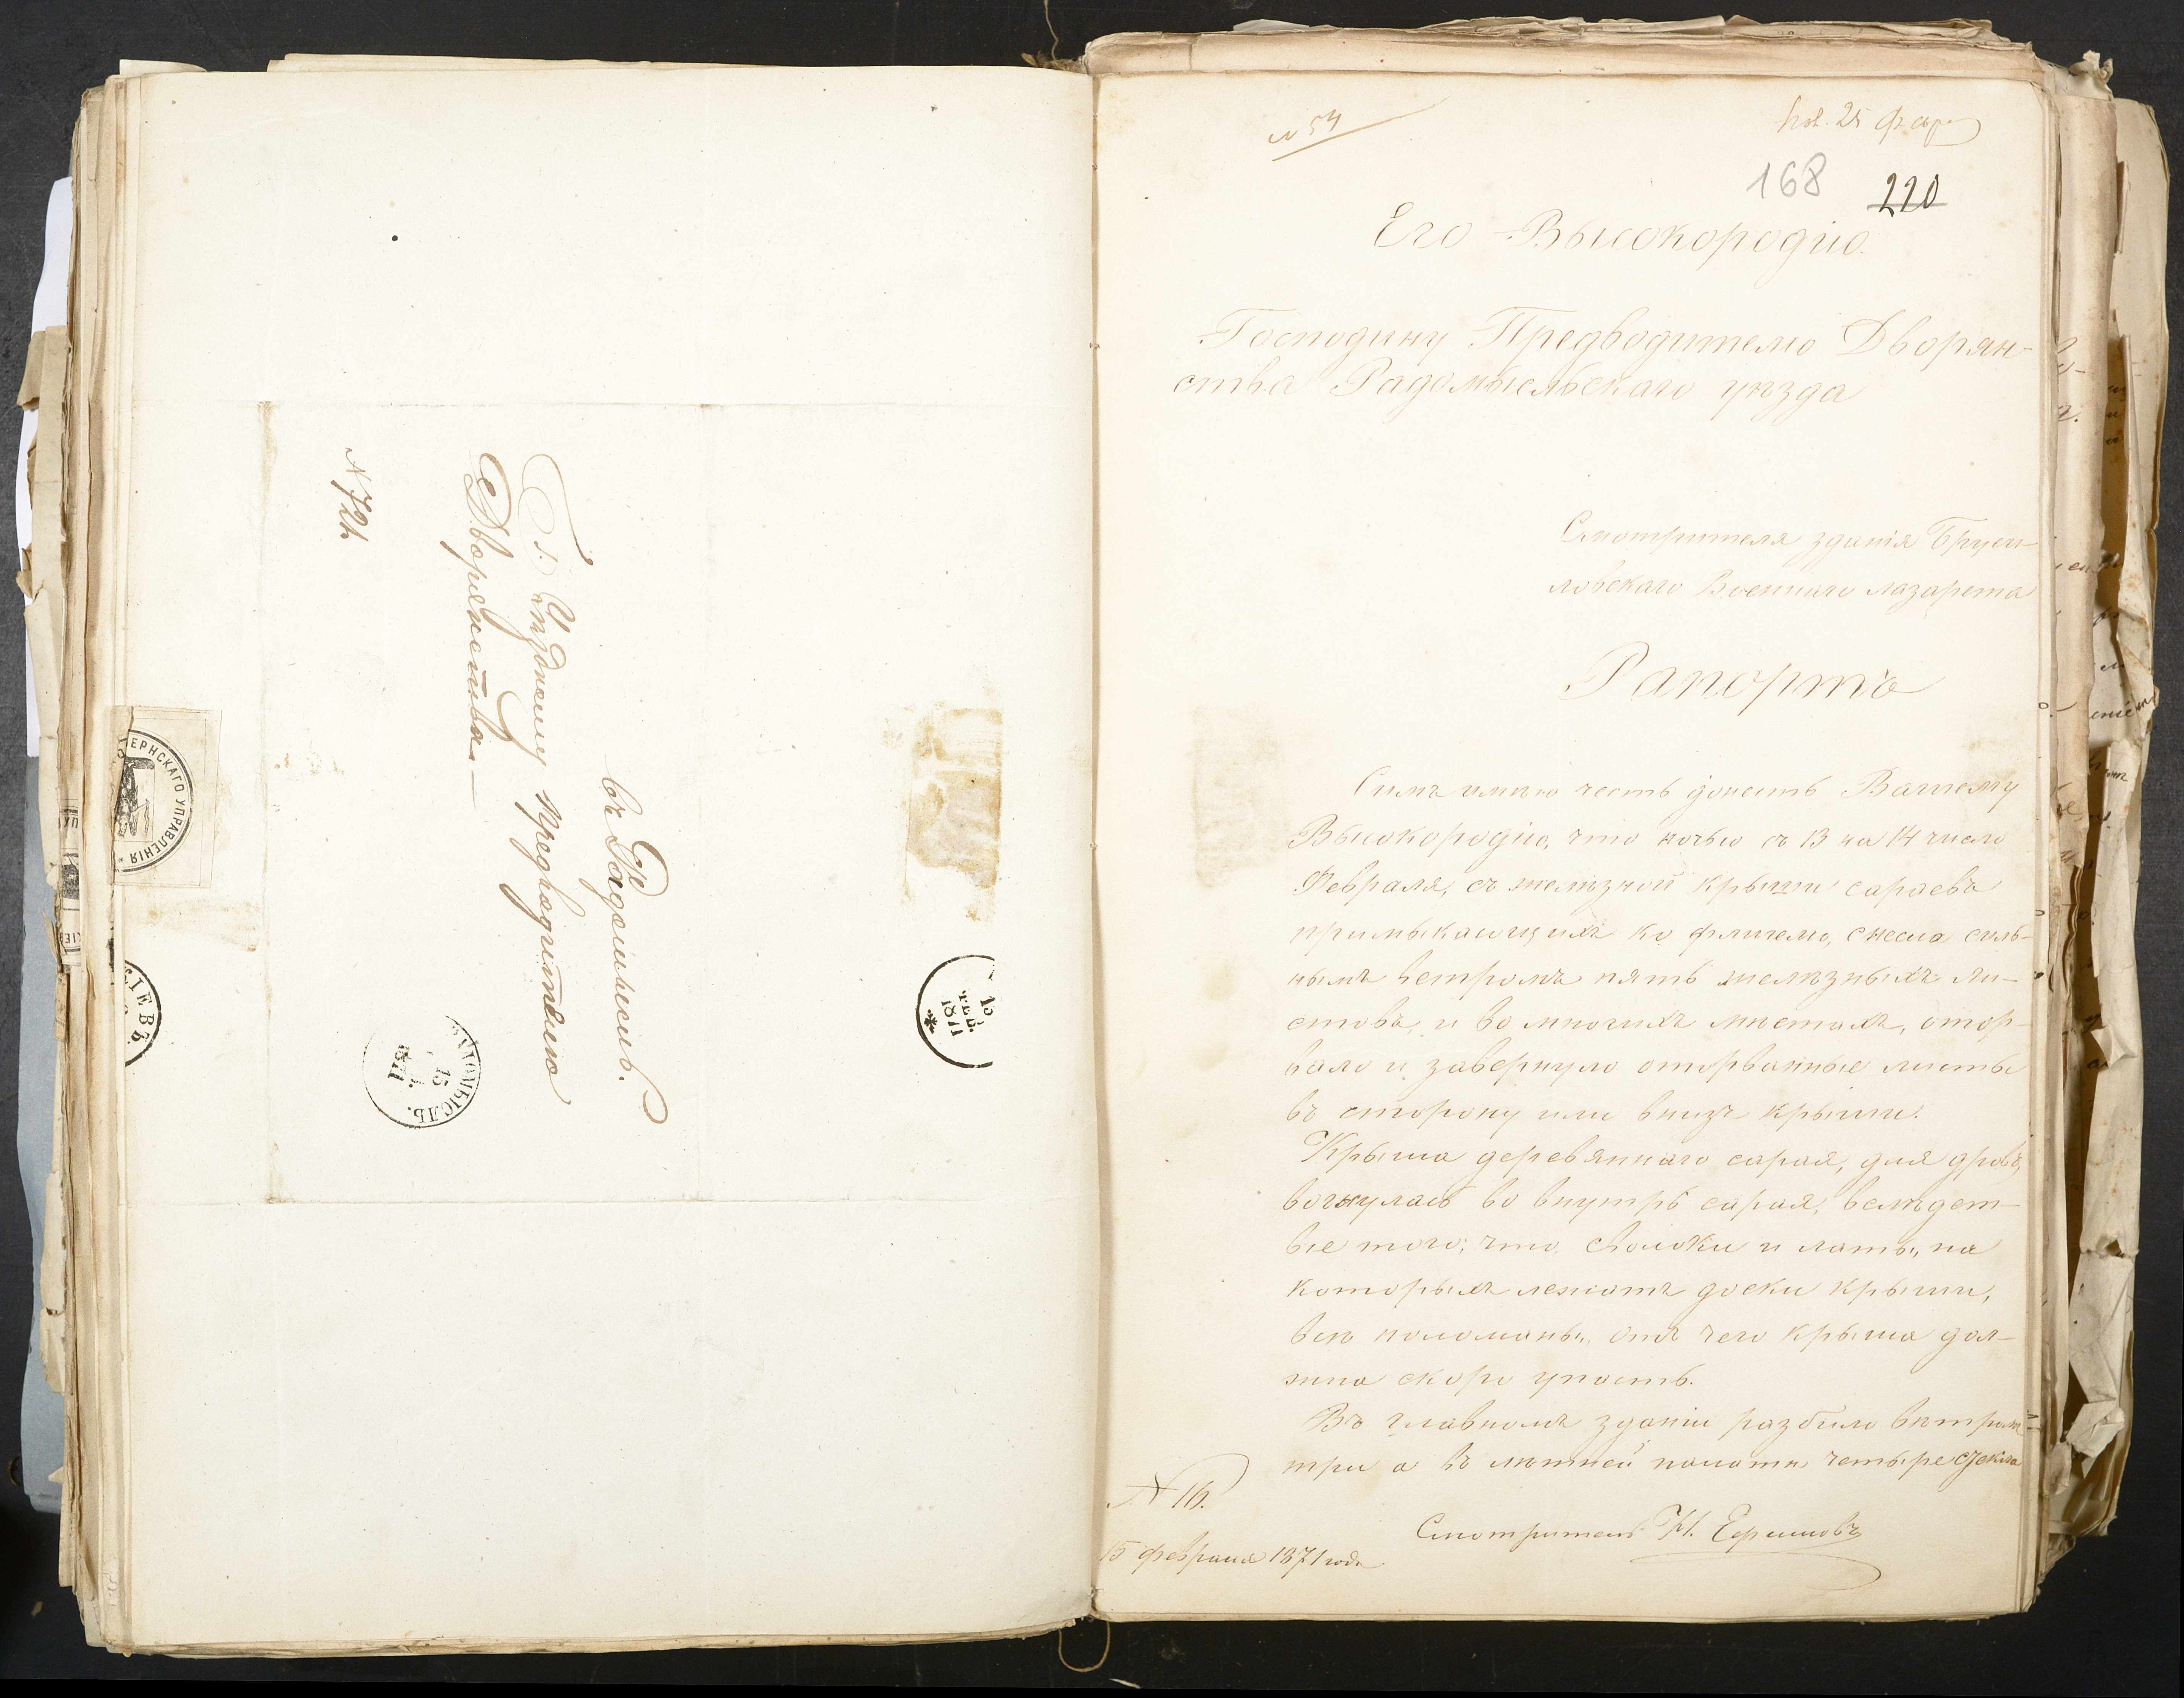 Г. Уѣздному предводителю
Дворянства
въ Радомысль.
N 721
ЕРНСКАГО УПРАВЛЕНІЯ *
КІЕВЪ.
РАДОМЫСЛЬ.
15
1871
15
ФЕВ.
1871
N 54
Пол. 25 Февр
168 220
Его Высокородію.
Господину Предводителю Дворян-
ства Радомысльскаго уѣзда
Смотрителя зданія Бруси-
ловскаго Военнаго лазарета
Рапортъ
Симъ имѣю честь донесть Вашему
Высокородію, что ночью съ 13 на 14 число
Февраля, съ желѣзной крыши сараевъ
примыкающихъ ко флигелю, снесло силь-
нымъ ветромъ пять желѣзныхъ ли-
стовъ, и во многихъ мѣстахъ, отор-
вало и завернуло оторванные листы
въ сторону или внизъ крыши.
Крыша деревяннаго сарая, для дровъ,
вогнулась во внутрь сарая, вслѣдст-
віе того, что сволоки и латы, на
которыхъ лежатъ доски крыши,
всѣ поломаны, отъ чего крыша дол-
жна скоро упасть.
Въ главномъ зданіи разбило вѣтромъ
три а въ лѣтней палатѣ четыре стекла
N 16.
15 февраля 1871 года
Смотритель Н. Ефимовъ